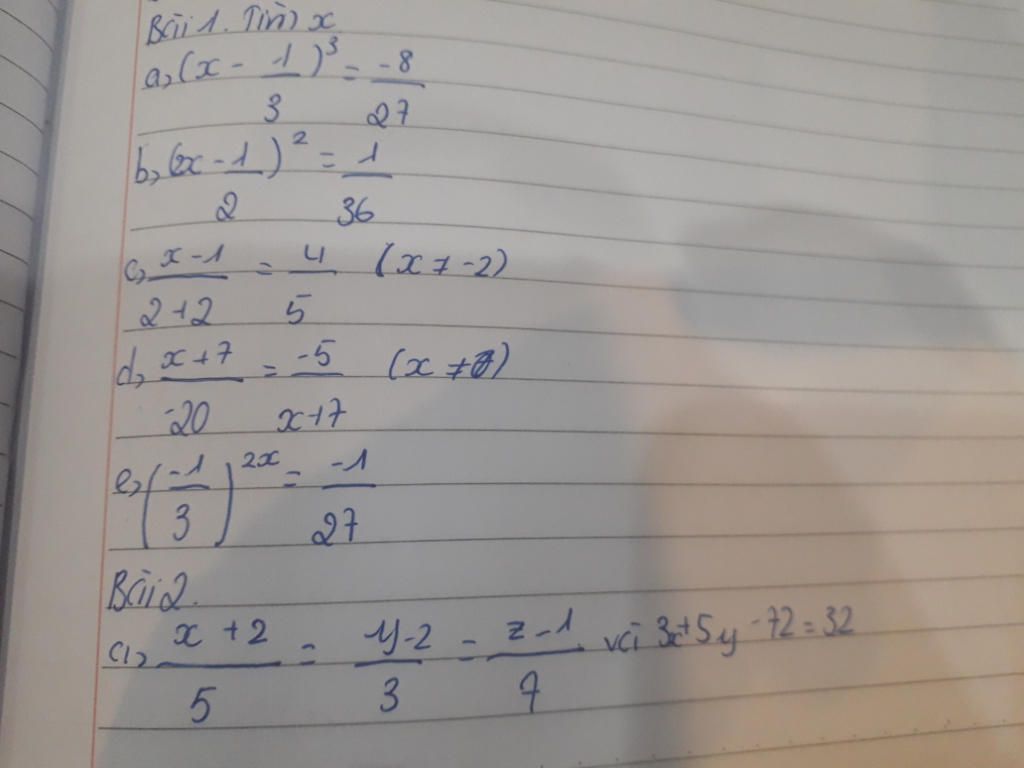 Bài 1. Tìm x
a, (x - 1/3)³ = -8/27
b, (x - 1/2)² = 1/36
c, x-1/2+2 = 4/5 (x ≠ -2)
d, x+7/-20 = -5/x+7 (x ≠)
e, (-1/3)^2x = -1/27
Bài 2.
a, x+2/5 = y-2/3 = z-1/7 và 3x+5y-7z=32